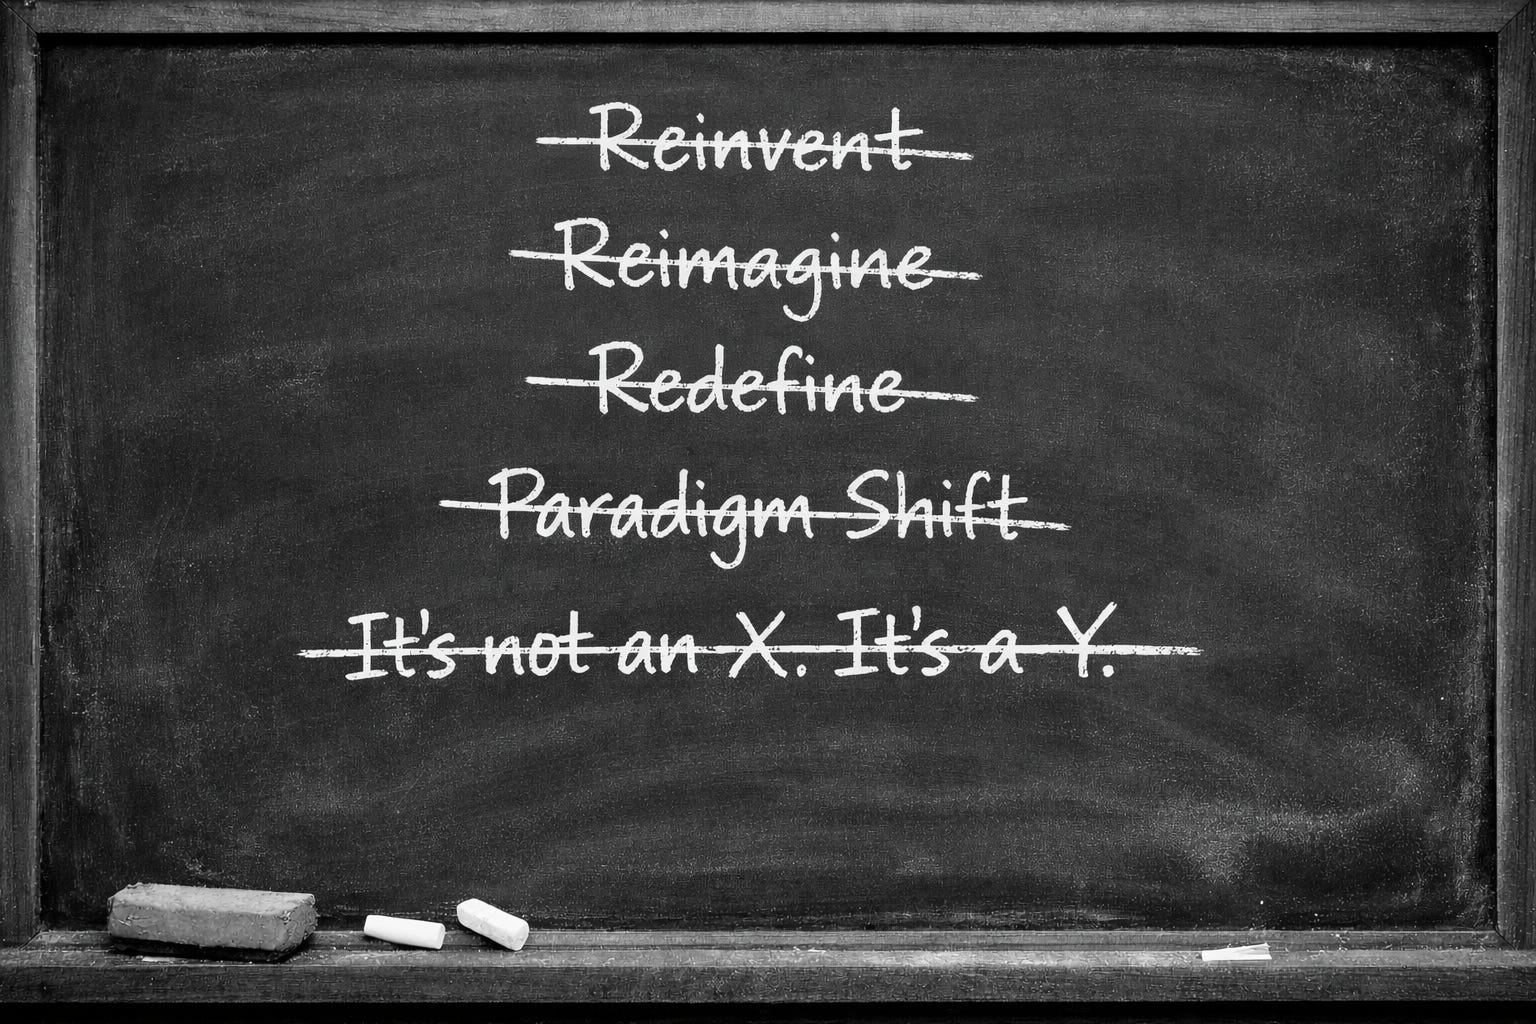 Reinvent
Reimagine
Redefine
Paradigm Shift
It's not an X. It's a Y.